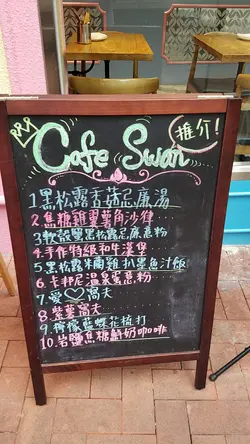 Cafe Swan
推介!
1 黑松露香菇忌廉湯
2. 焦糖雞翼薯角沙律
3 軟殼蟹黑松露忌廉意粉
4. 手作特級和牛漢堡
5 黑松露米蘭雞扒墨色汁飯
6. 卡邦尼溫泉蛋意粉
7. 愛♡窩夫
8. 紫薯窩夫
9. 檸檬藍蝶花梳打
10. 岩鹽焦糖鮮奶咖啡